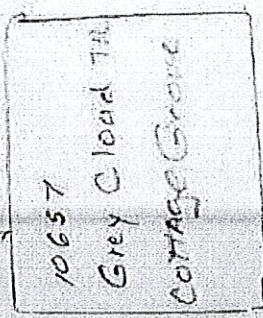 10657
Grey Cloud TR.
COTTAGE Grove